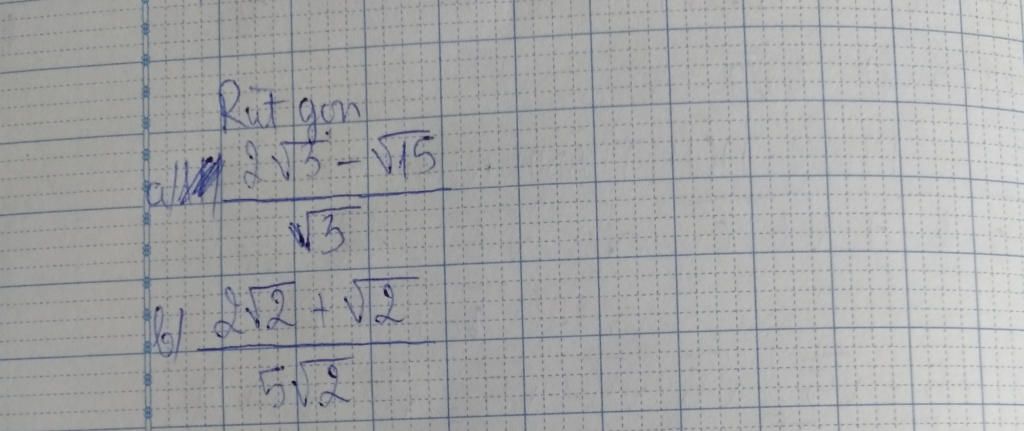 Rút gọn
a) 2√3 - √15
√3
b) 2√2 + √2
5√2